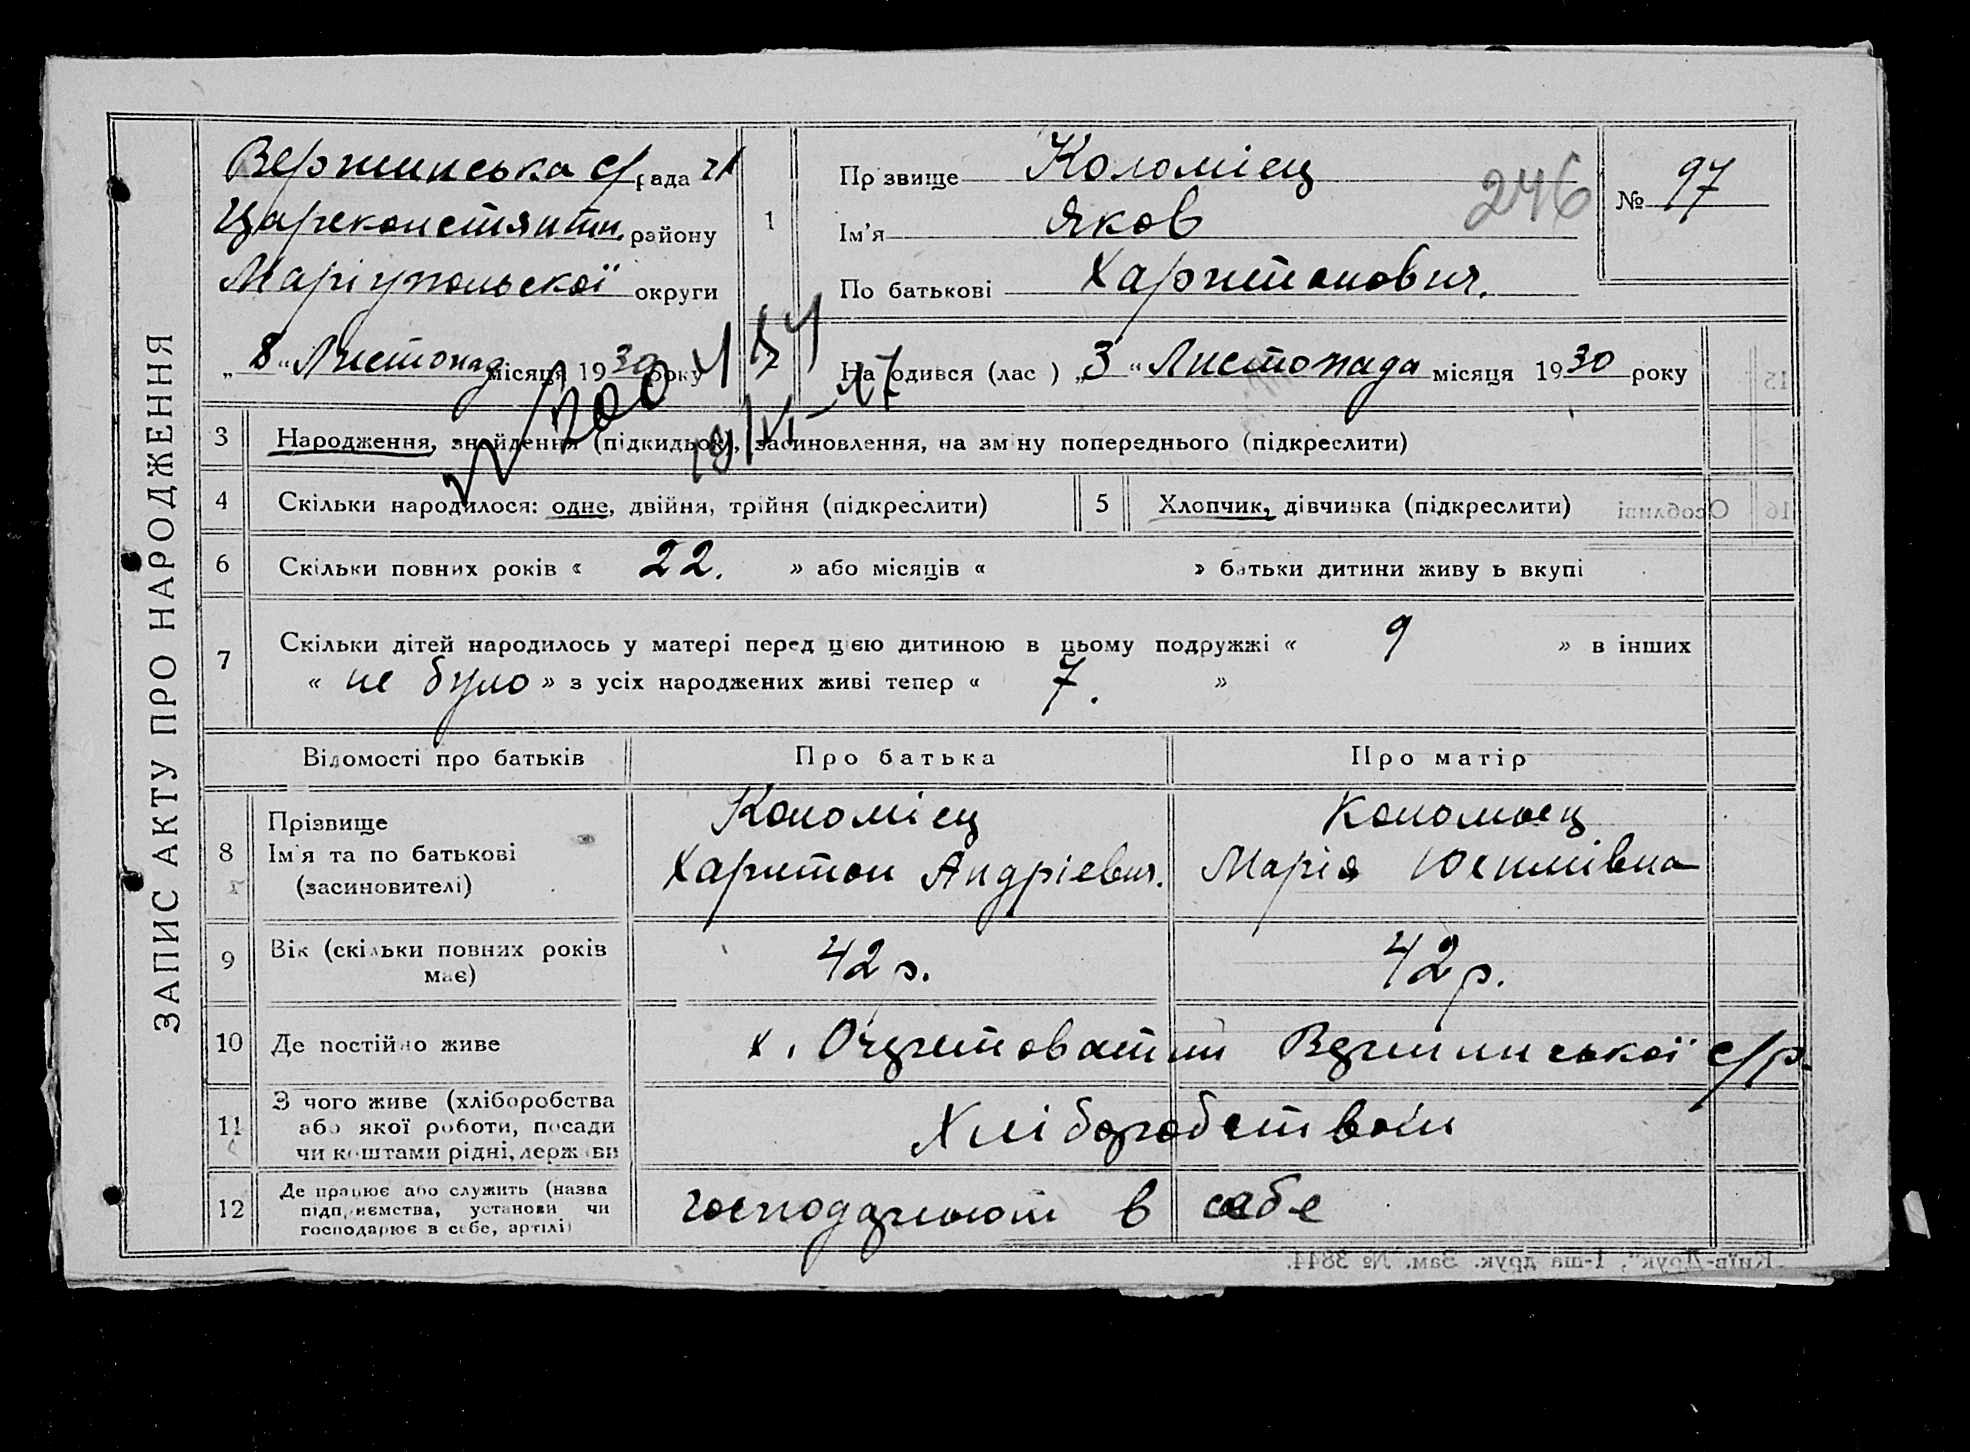 ЗАПИС АКТУ ПРО НАРОДЖЕННЯ
Вершинська с/рада
Цареконстянтин. району
Маріупольскої округи
"8" Листопад місяця 1930 року
1
Прізвище Коломіец
Ім'я Яков
По батькові Харитонович.
246
№ 97
На одився (лас ) "3" Листопада місяця 1930 року
3 Народження, знайдення (підкидьок), засиновлення, на зміну попереднього (підкреслити)
4 Скільки народилося: одне, двійня, трійня (підкреслити)
5 Хлопчик, дівчинка (підкреслити)
6 Скільки повних років « 22. » або місяців « » батьки дитини живу ь вкупі
7 Скільки дітей народилось у матері перед цією дитиною в цьому подружжі « 9 » в інших
« не було » з усіх народжених живі тепер « 7. »
Відомості про батьків
Про батька
Про матір
8 Прізвище
Ім'я та по батькові
(засиновителі)
Коломіец
Харитон Андріевич.
Коломоец
Марія Юхимівна
9 Вік (скільки повних років
має)
42 р.
42 р.
10 Де постійно живе
х. Очеретоватий Вершинської с/р.
11 З чого живе (хліборобства
або якої роботи, посади
чи коштами рідні, держави
Хліборобством
12 Де працює або служить (назва
підприємства, установи чи
господарює в себе, артілі)
господарюют в себе
Київ-Друк", 1-ша друк. Зам. № 3844.